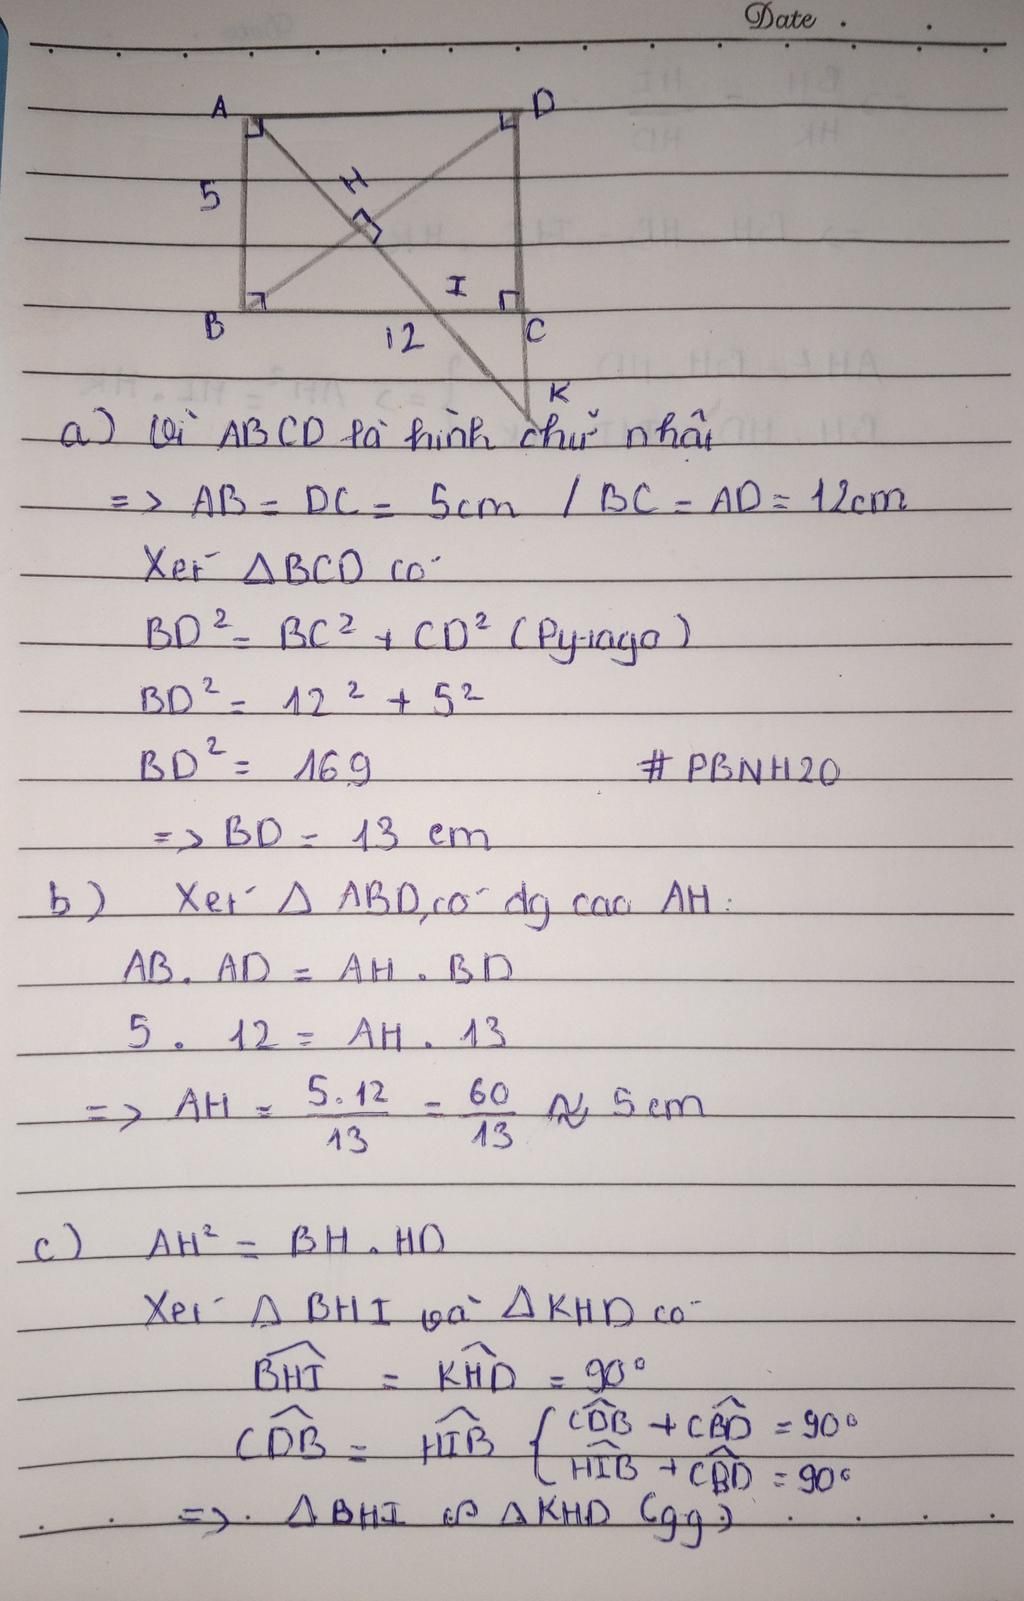 Date
A
D
5
H
I
B
12
C
K
a) Vì ABCD là hình chữ nhâi
=> AB = DC = 5cm / BC = AD = 12cm
Xei ΔBCD có
BD² = BC² + CD² (Py-iago)
BD² = 12² + 5²
BD² = 169 # PBNH20
=> BD = 13 cm
b) Xei Δ ABD, có đg cao AH:
AB. AD = AH . BD
5 . 12 = AH . 13
=> AH = 5.12/13 = 60/13 ≈ 5cm
c) AH² = BH . HD
Xei Δ BHI và Δ KHD có
BHI = KHD = 90°
CDB = HIB { CDB + CBD = 90°
HIB + CBD = 90°
=> Δ BHI ∽ Δ KHD (gg)